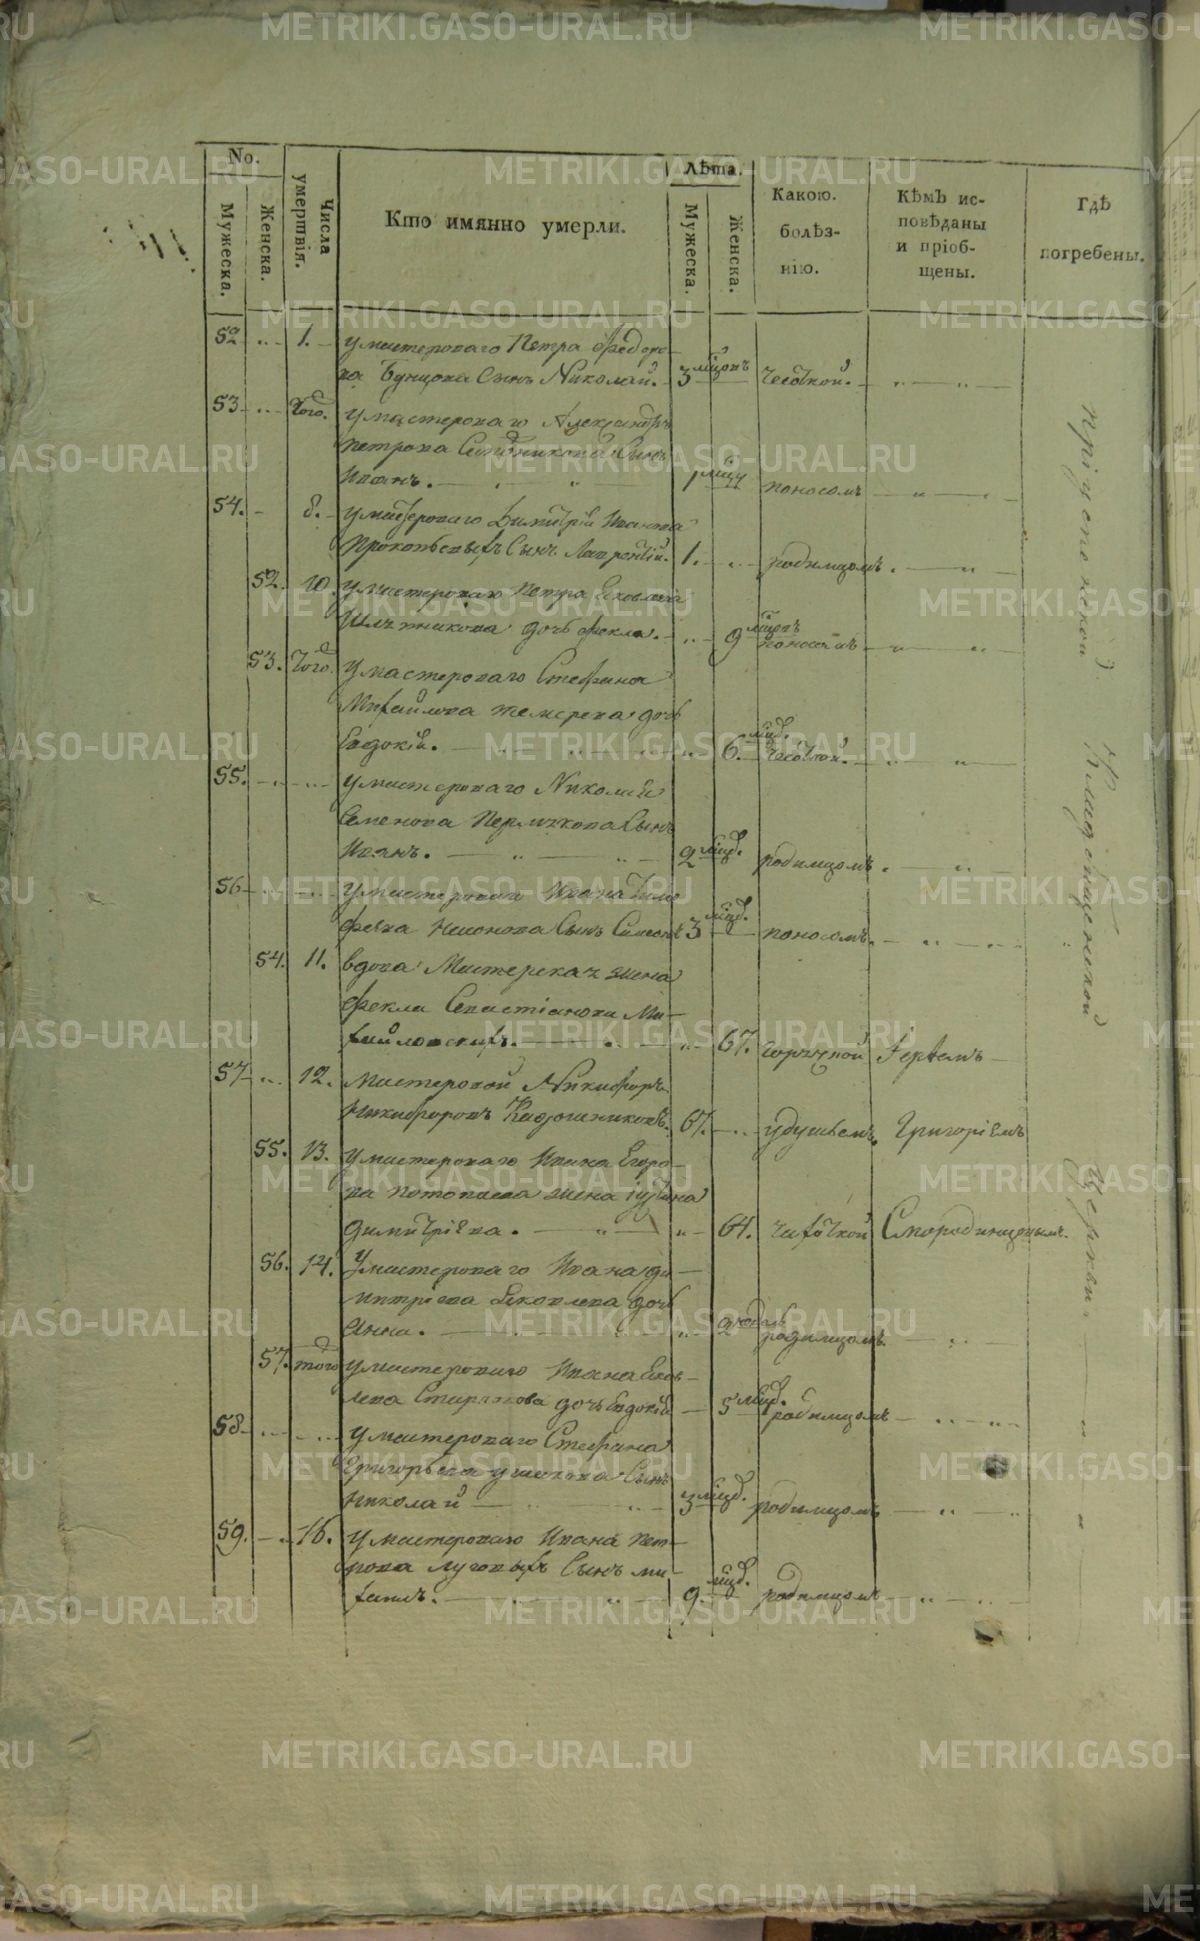 No.
Мужеска.
Женска.
Числа умертвія.
Кто имянно умерли.
Лѣта.
Мужеска.
Женска.
Какою болѣз-
нію.
Кѣмъ ис-
повѣданы
и пріоб-
щены.
Гдѣ
погребены.
52 1. у мастероваго Петра Ѳедоро-
ва Бунцова Сынъ Николай. 3 чесоткой.
53 того. у мастероваго Александра
Петрова Сынъ
Иванъ. 1 поносомъ
54. 8. у мастероваго Димитрія Иванова
Прокопьевыхъ Сынъ Лаврентій. 1. родимцомъ.
52. 10. у мастероваго Петра Яковлева
дочь Ѳекла. 9 поносомъ
53. того у мастероваго Стефана
Михайлова дочь
Евдокія. 6. чесоткой.
55. у мастероваго Николая
Семенова Сынъ
Иванъ. 2 родимцомъ.
56 у мастероваго Ивана Тимо
феева Сынъ Симеонъ 3 поносомъ.
54. 11. вдова Мастерская жена
Ѳекла Севастіанова Ми-
хайловскихъ. 67. горячкой Іереемъ
57 12. Мастеровой Никифоръ
Никифоровъ 67. удушьемъ. Григоріемъ
55. 13. у мастероваго Ивана Егоро-
ва Потопаева жена
Димитріева. 64. чахоткой Смородинцовымъ.
56. 14. У мастероваго Ивана Ди-
митріева Яковлева дочь
Анна. 2 родимцомъ.
57. того у мастероваго Ивана Яков-
лева дочь Евдокія 5 родимцомъ
58 у мастероваго Стефана
Григорьева Ушакова Сынъ
Николай 3 родимцомъ
59. 16. у мастероваго Ивана Пет-
рова Луговыхъ Сынъ Ми-
хаилъ. 9. родимцомъ
при
Кладбищенской
церкви
METRIKI.GASO-URAL.RU